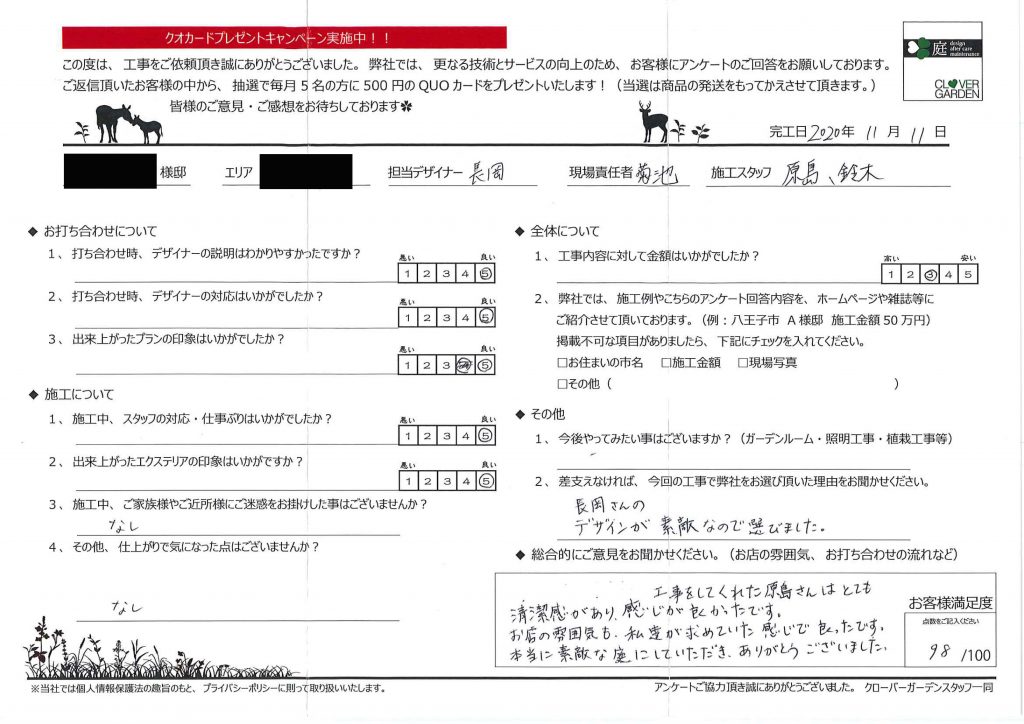 クオカードプレゼントキャンペーン実施中！！
この度は、工事をご依頼頂き誠にありがとうございました。弊社では、更なる技術とサービスの向上のため、お客様にアンケートのご回答をお願いしております。
ご返信頂いたお客様の中から、抽選で毎月5名の方に500円のQUOカードをプレゼントいたします！（当選は商品の発送をもってかえさせて頂きます。）
皆様のご意見・ご感想をお待ちしております✿
庭 design after care maintenance
CLOVER GARDEN
完工日2020年 11月 11日
様邸 エリア 担当デザイナー 長岡 現場責任者 菊池 施工スタッフ 原島、鈴木
◆ お打ち合わせについて
1、打ち合わせ時、デザイナーの説明はわかりやすかったですか？
悪い 良い
1 2 3 4 5
2、打ち合わせ時、デザイナーの対応はいかがでしたか？
悪い 良い
1 2 3 4 5
3、出来上がったプランの印象はいかがでしたか？
悪い 良い
1 2 3 5
◆ 施工について
1、施工中、スタッフの対応・仕事ぶりはいかがでしたか？
悪い 良い
1 2 3 4 5
2、出来上がったエクステリアの印象はいかがですか？
悪い 良い
1 2 3 4 5
3、施工中、ご家族様やご近所様にご迷惑をお掛けした事はございませんか？
なし
4、その他、仕上がりで気になった点はございませんか？
なし
◆ 全体について
1、工事内容に対して金額はいかがでしたか？
高い 安い
1 2 3 4 5
2、弊社では、施工例やこちらのアンケート回答内容を、ホームページや雑誌等に
ご紹介させて頂いております。（例：八王子市 A様邸 施工金額50万円）
掲載不可な項目がありましたら、下記にチェックを入れてください。
□お住まいの市名 □施工金額 □現場写真
□その他（ ）
◆ その他
1、今後やってみたい事はございますか？（ガーデンルーム・照明工事・植栽工事等）
2、差支えなければ、今回の工事で弊社をお選び頂いた理由をお聞かせください。
長岡さんの
デザインが素敵なので選びました。
◆ 総合的にご意見をお聞かせください。（お店の雰囲気、お打ち合わせの流れなど）
工事をしてくれた原島さんはとても
清潔感があり、感じが良かったです。
お店の雰囲気も、私達が求めていた感じで良ったです。
本当に素敵な庭にしていただき、ありがとうございました。
お客様満足度
点数をご記入ください
98 /100
※当社では個人情報保護法の趣旨のもと、プライバシーポリシーに則って取り扱いいたします。
アンケートご協力頂き誠にありがとうございました。クローバーガーデンスタッフ一同